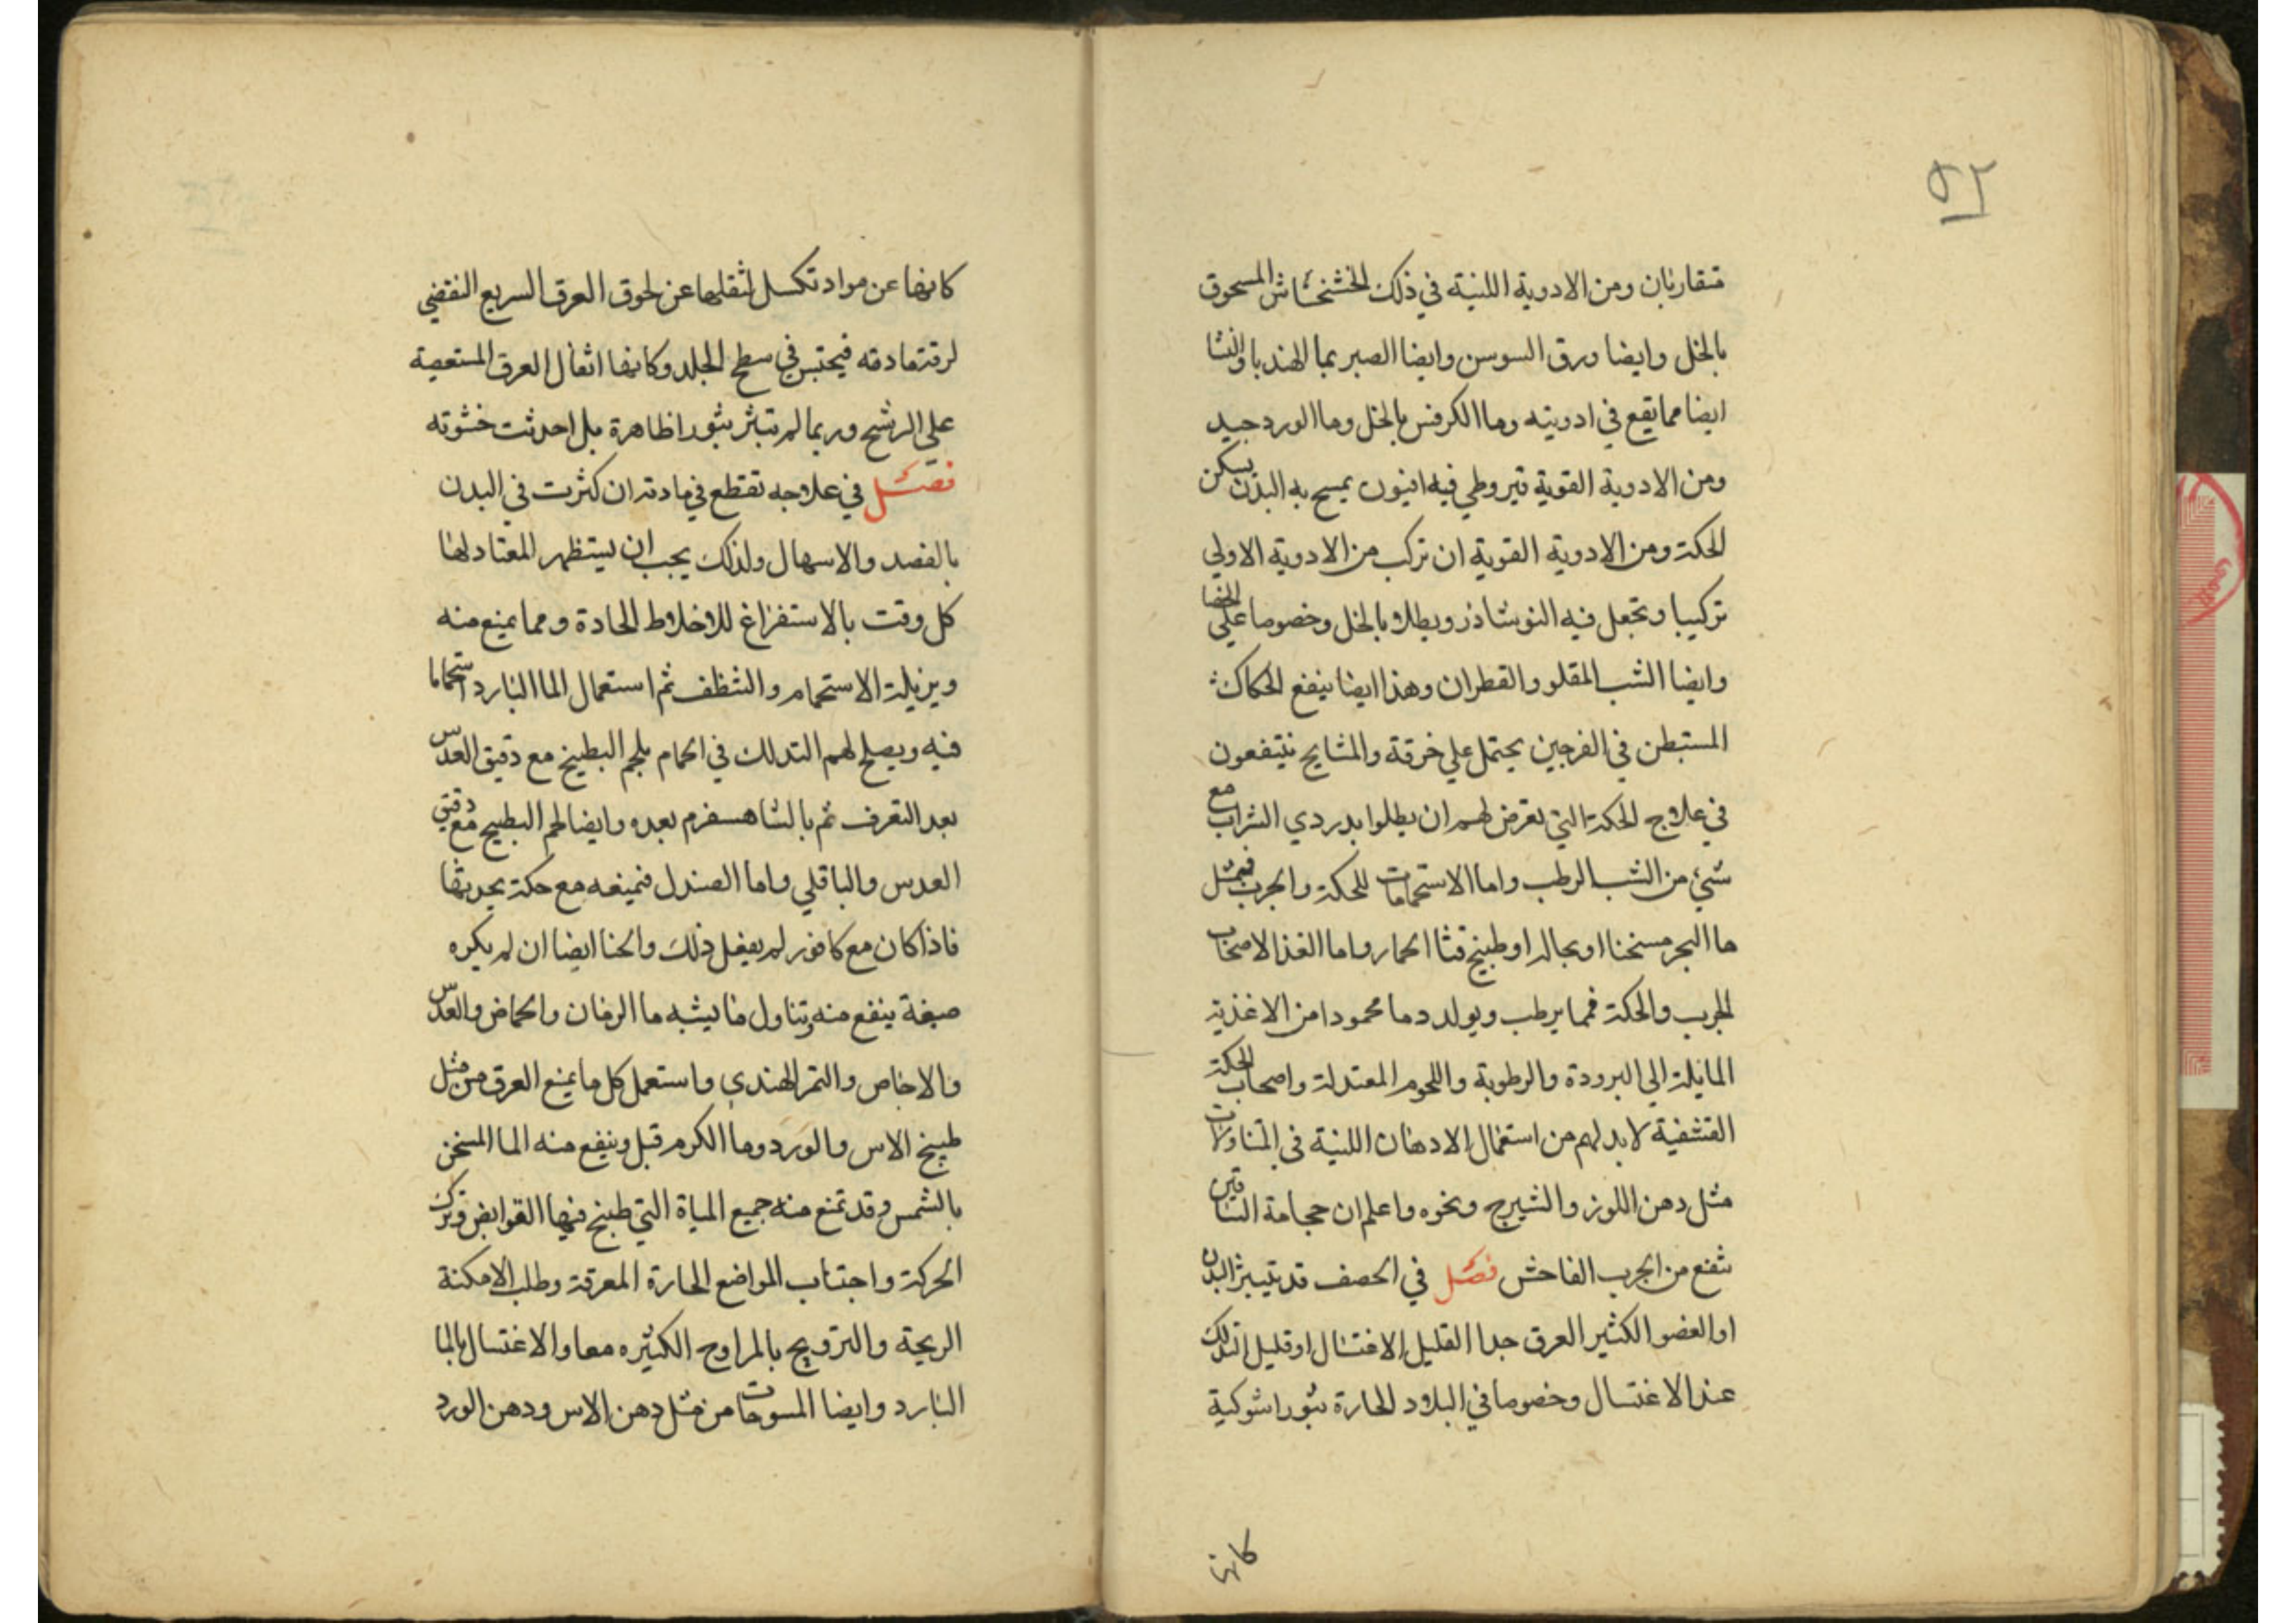 ٩٢
متقاربان ومن الادوية اللينة في ذلك الخشخاش المسحوق
بالخل وايضا ورق السوسن وايضا الصبر بما الهندبا والنشا
ايضا مما يقع في ادويته وما الكرفس بالخل وما الورد جيد
ومن الادوية القوية قيروطي فيه افيون يمسح به البدن يسكن
الحكة ومن الادوية القوية ان تركب من الادوية الاولي
تركيبا وتجعل فيه النوشاذر ويطلا بالخل وخصوصا علي الخصا
وايضا الشب المقلو والقطران وهذا ايضا ينفع الحكاك
المستبطن في الفرجين يحتمل علي خرقة والمشايح ينتفعون
في علاج الحكة التي تعرض لهم ان يطلوا بدردي الشراب مع
شيء من الشب الرطب واما الاستحمامات للحكة والجرب فبمثل
ما البحر مسخنا او بحاله او طبيخ قثا الحمار واما الغذا لاصحاب
الجرب والحكة فما يرطب ويولد دما محمودا من الاغذية
المايلة الي البرودة والرطوبة واللحوم المعتدلة واصحاب الحكة
القشفية لا بد لهم من استعمال الادهان اللينة في المتناولات
مثل دهن اللوز والشيرج ونحوه واعلم ان حجامة الساقين
تنفع من الجرب الفاحش فصل في الحصف قد يتبثر البدن
او العضو الكثير العرق جدا القليل الاغتسال او قليل التدلك
عند الاغتسال وخصوصا في البلاد الحارة بثورا شوكية
كانها
كانها عن مواد تكسل لثقلها عن لحوق العرق السريع النفضي
لرقة مادته فيحتبس في سطح الجلد وكانها اثفال العرق المستعصية
علي الرشح وربما لم تبثر بثورا ظاهرة بل احدثت خشونه
فصل في علاجه تقطع في مادته ان كثرت في البدن
بالفصد والاسهال ولذلك يجب ان يستظهر المعتاد لها
كل وقت بالاستفراغ للاخلاط الحادة ومما يمنع منه
ويزيلة الاستحمام والتنظف ثم استعمال الما البارد استحماما
فيه ويصلح لهم التدلك في الحمام بلحم البطيخ مع دقيق العدس
بعد التعرف ثم بالشاهسفرم بعده وايضا لحم البطيح مع دقيق
العدس والباقلي واما الصندل فيمنعه مع حكة يحدثها
فاذا كان مع كافور لم يفعل ذلك والحنا ايضا ان لم يكره
صبغة ينفع منه وتناول ما يشبه ما الرمان والحماض والعدس
والاجاص والتمر الهندي واستعمل كل ما يمنع العرق من مثل
طبيخ الاس والورد وما الكرم قبل وينفع منه الما المسخن
بالشمس وقد تمنع منه جميع المياة التي طبخ فيها القوابض وترك
الحركة واجتناب المواضع الحارة المعرقة وطلب الامكنة
الريحية والترويح بالمراوح الكثيره معا والاغتسال بالما
البارد وايضا المسوحات من مثل دهن الاس ودهن الورد